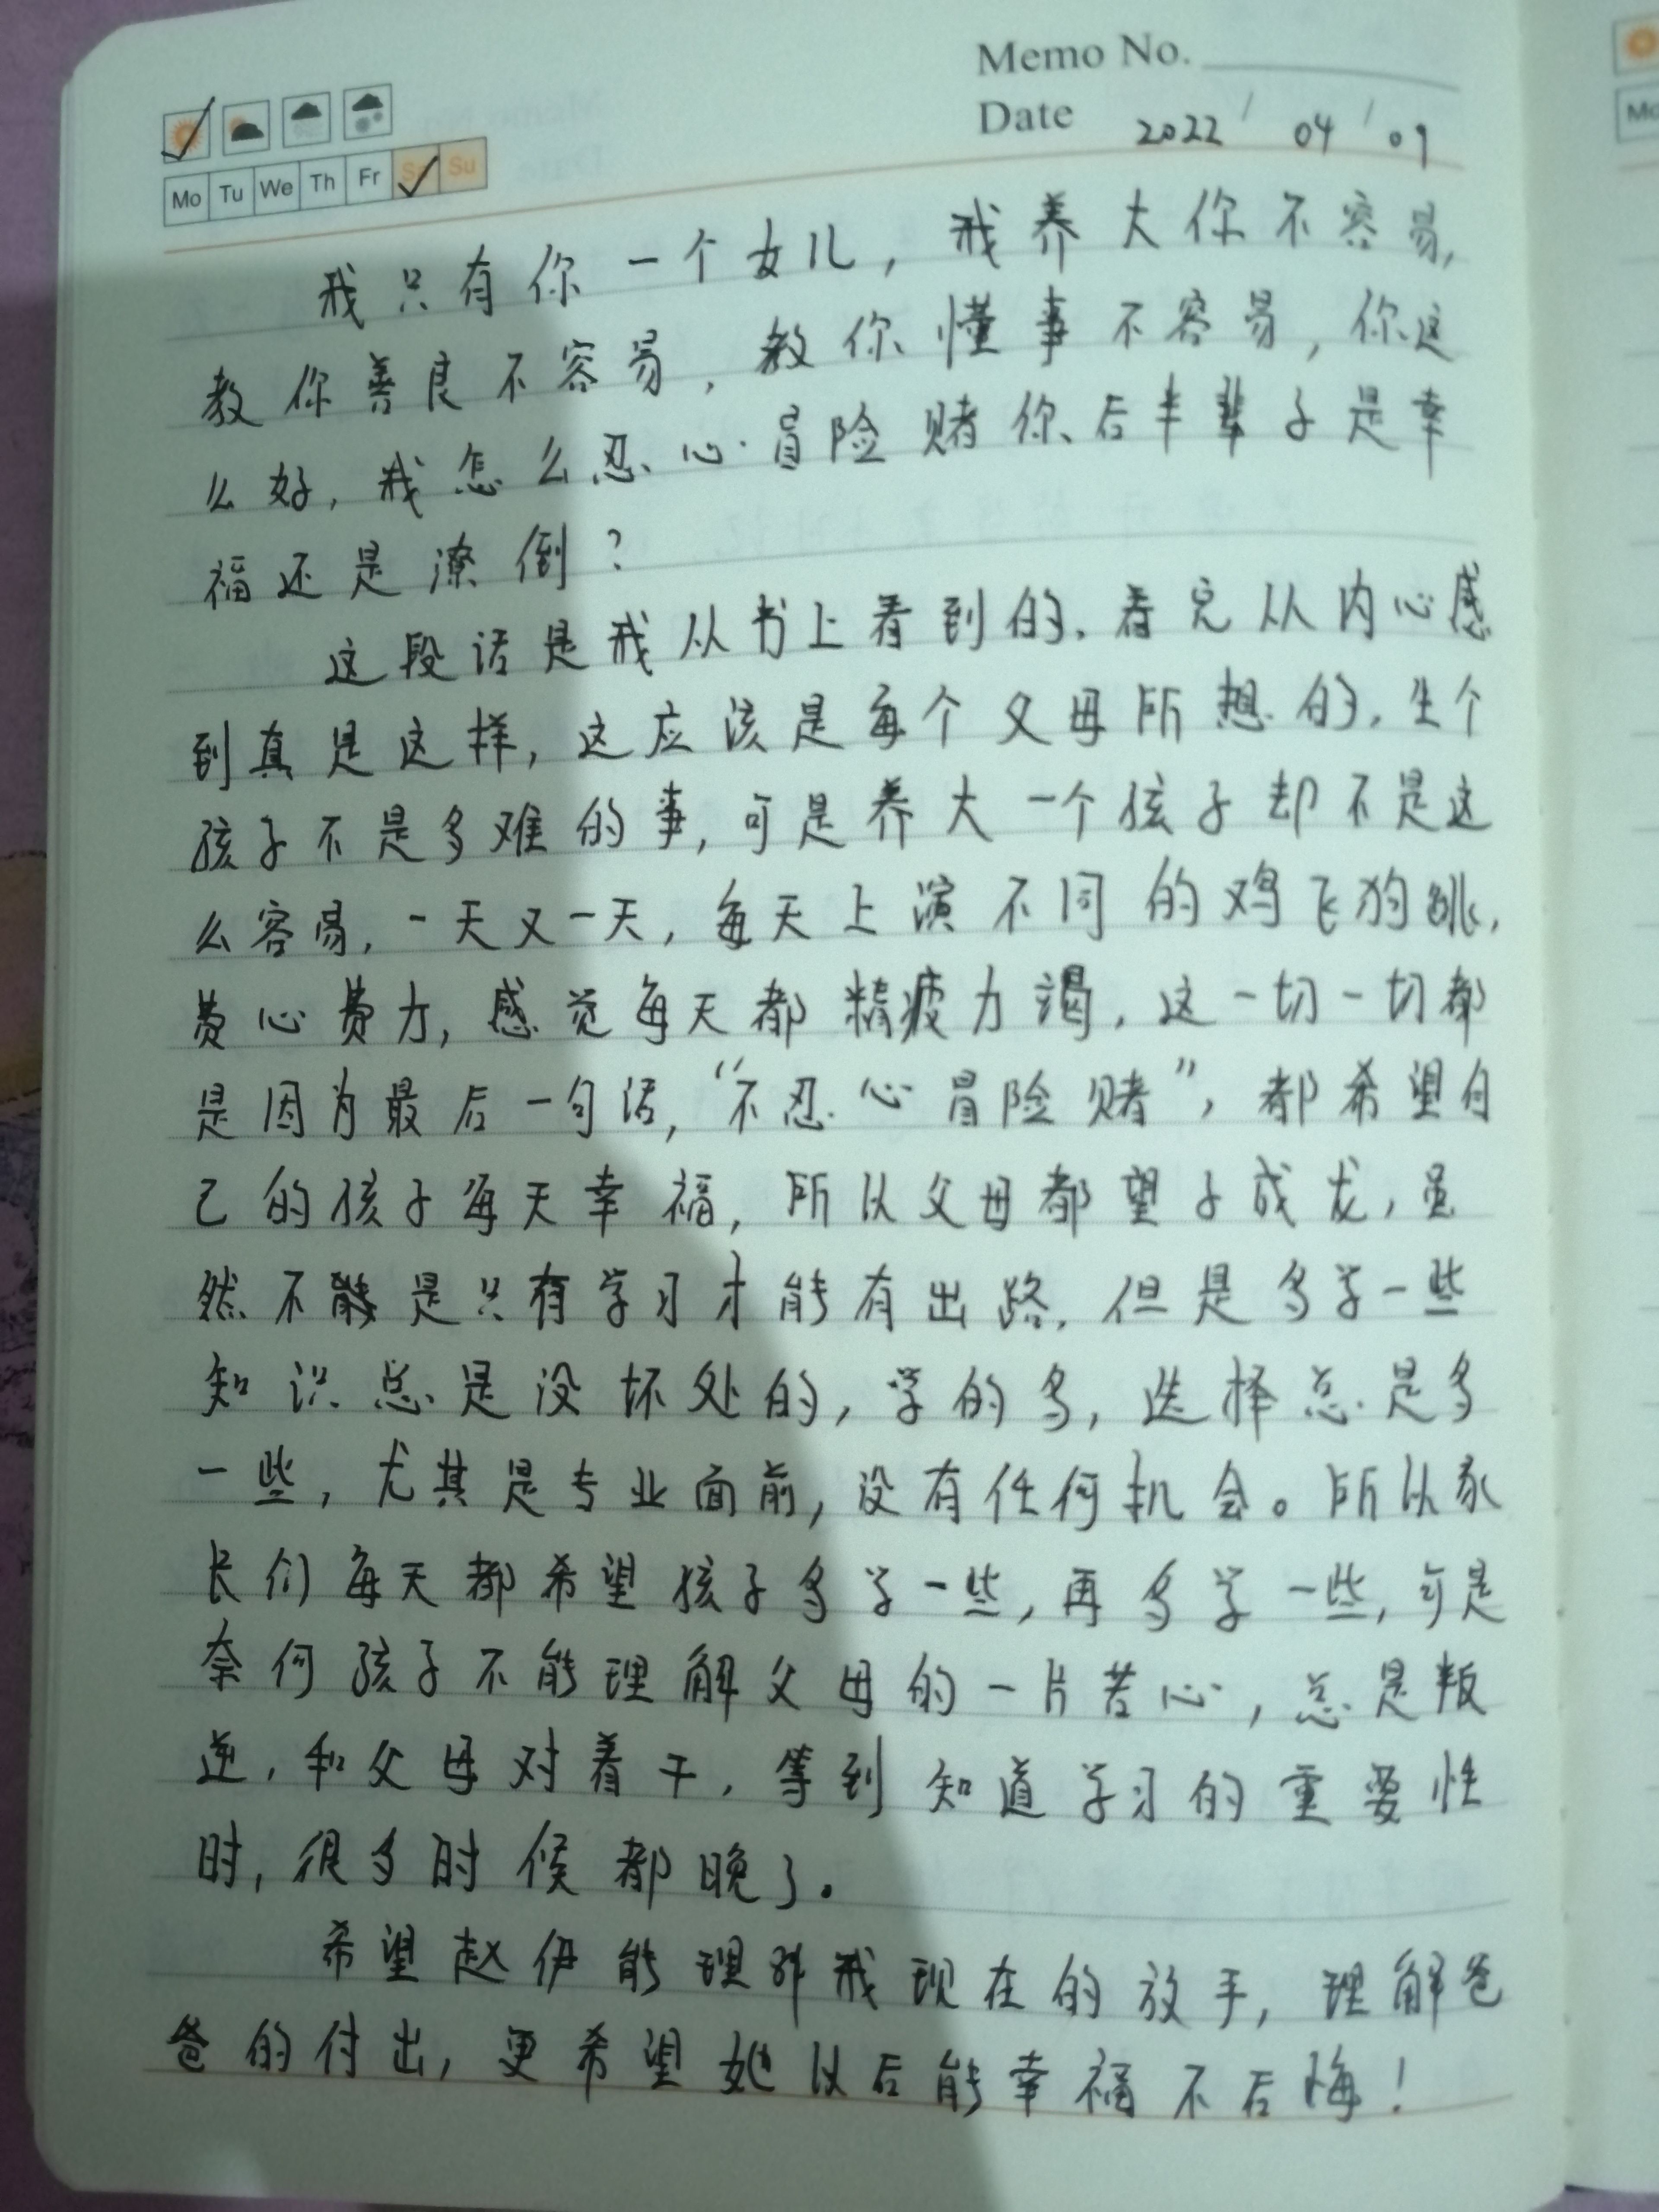 Memo No.
Date 2022/04/09
Mo Tu We Th Fr Sa Su
我只有你一个女儿，我养大你不容易，
教你善良不容易，教你懂事不容易，你这
么好，我怎么忍心冒险赌你后半辈子是幸
福还是潦倒？
这段话是我从书上看到的，看完从内心感
到真是这样，这应该是每个父母所想的，生个
孩子不是多难的事，可是养大一个孩子却不是这
么容易，一天又一天，每天上演不同的鸡飞狗跳，
费心费力，感觉每天都精疲力竭，这一切一切都
是因为最后一句话，“不忍心冒险赌”，都希望自
己的孩子每天幸福，所以父母都望子成龙，虽
然不能是只有学习才能有出路，但是多学一些
知识总是没坏处的，学的多，选择总是多
一些，尤其是专业面前，没有任何机会。所以家
长们每天都希望孩子多学一些，再多学一些，可是
奈何孩子不能理解父母的一片苦心，总是叛
逆，和父母对着干，等到知道学习的重要性
时，很多时候都晚了。
希望赵伊能理解我现在的放手，理解爸
爸的付出，更希望她以后能幸福不后悔！